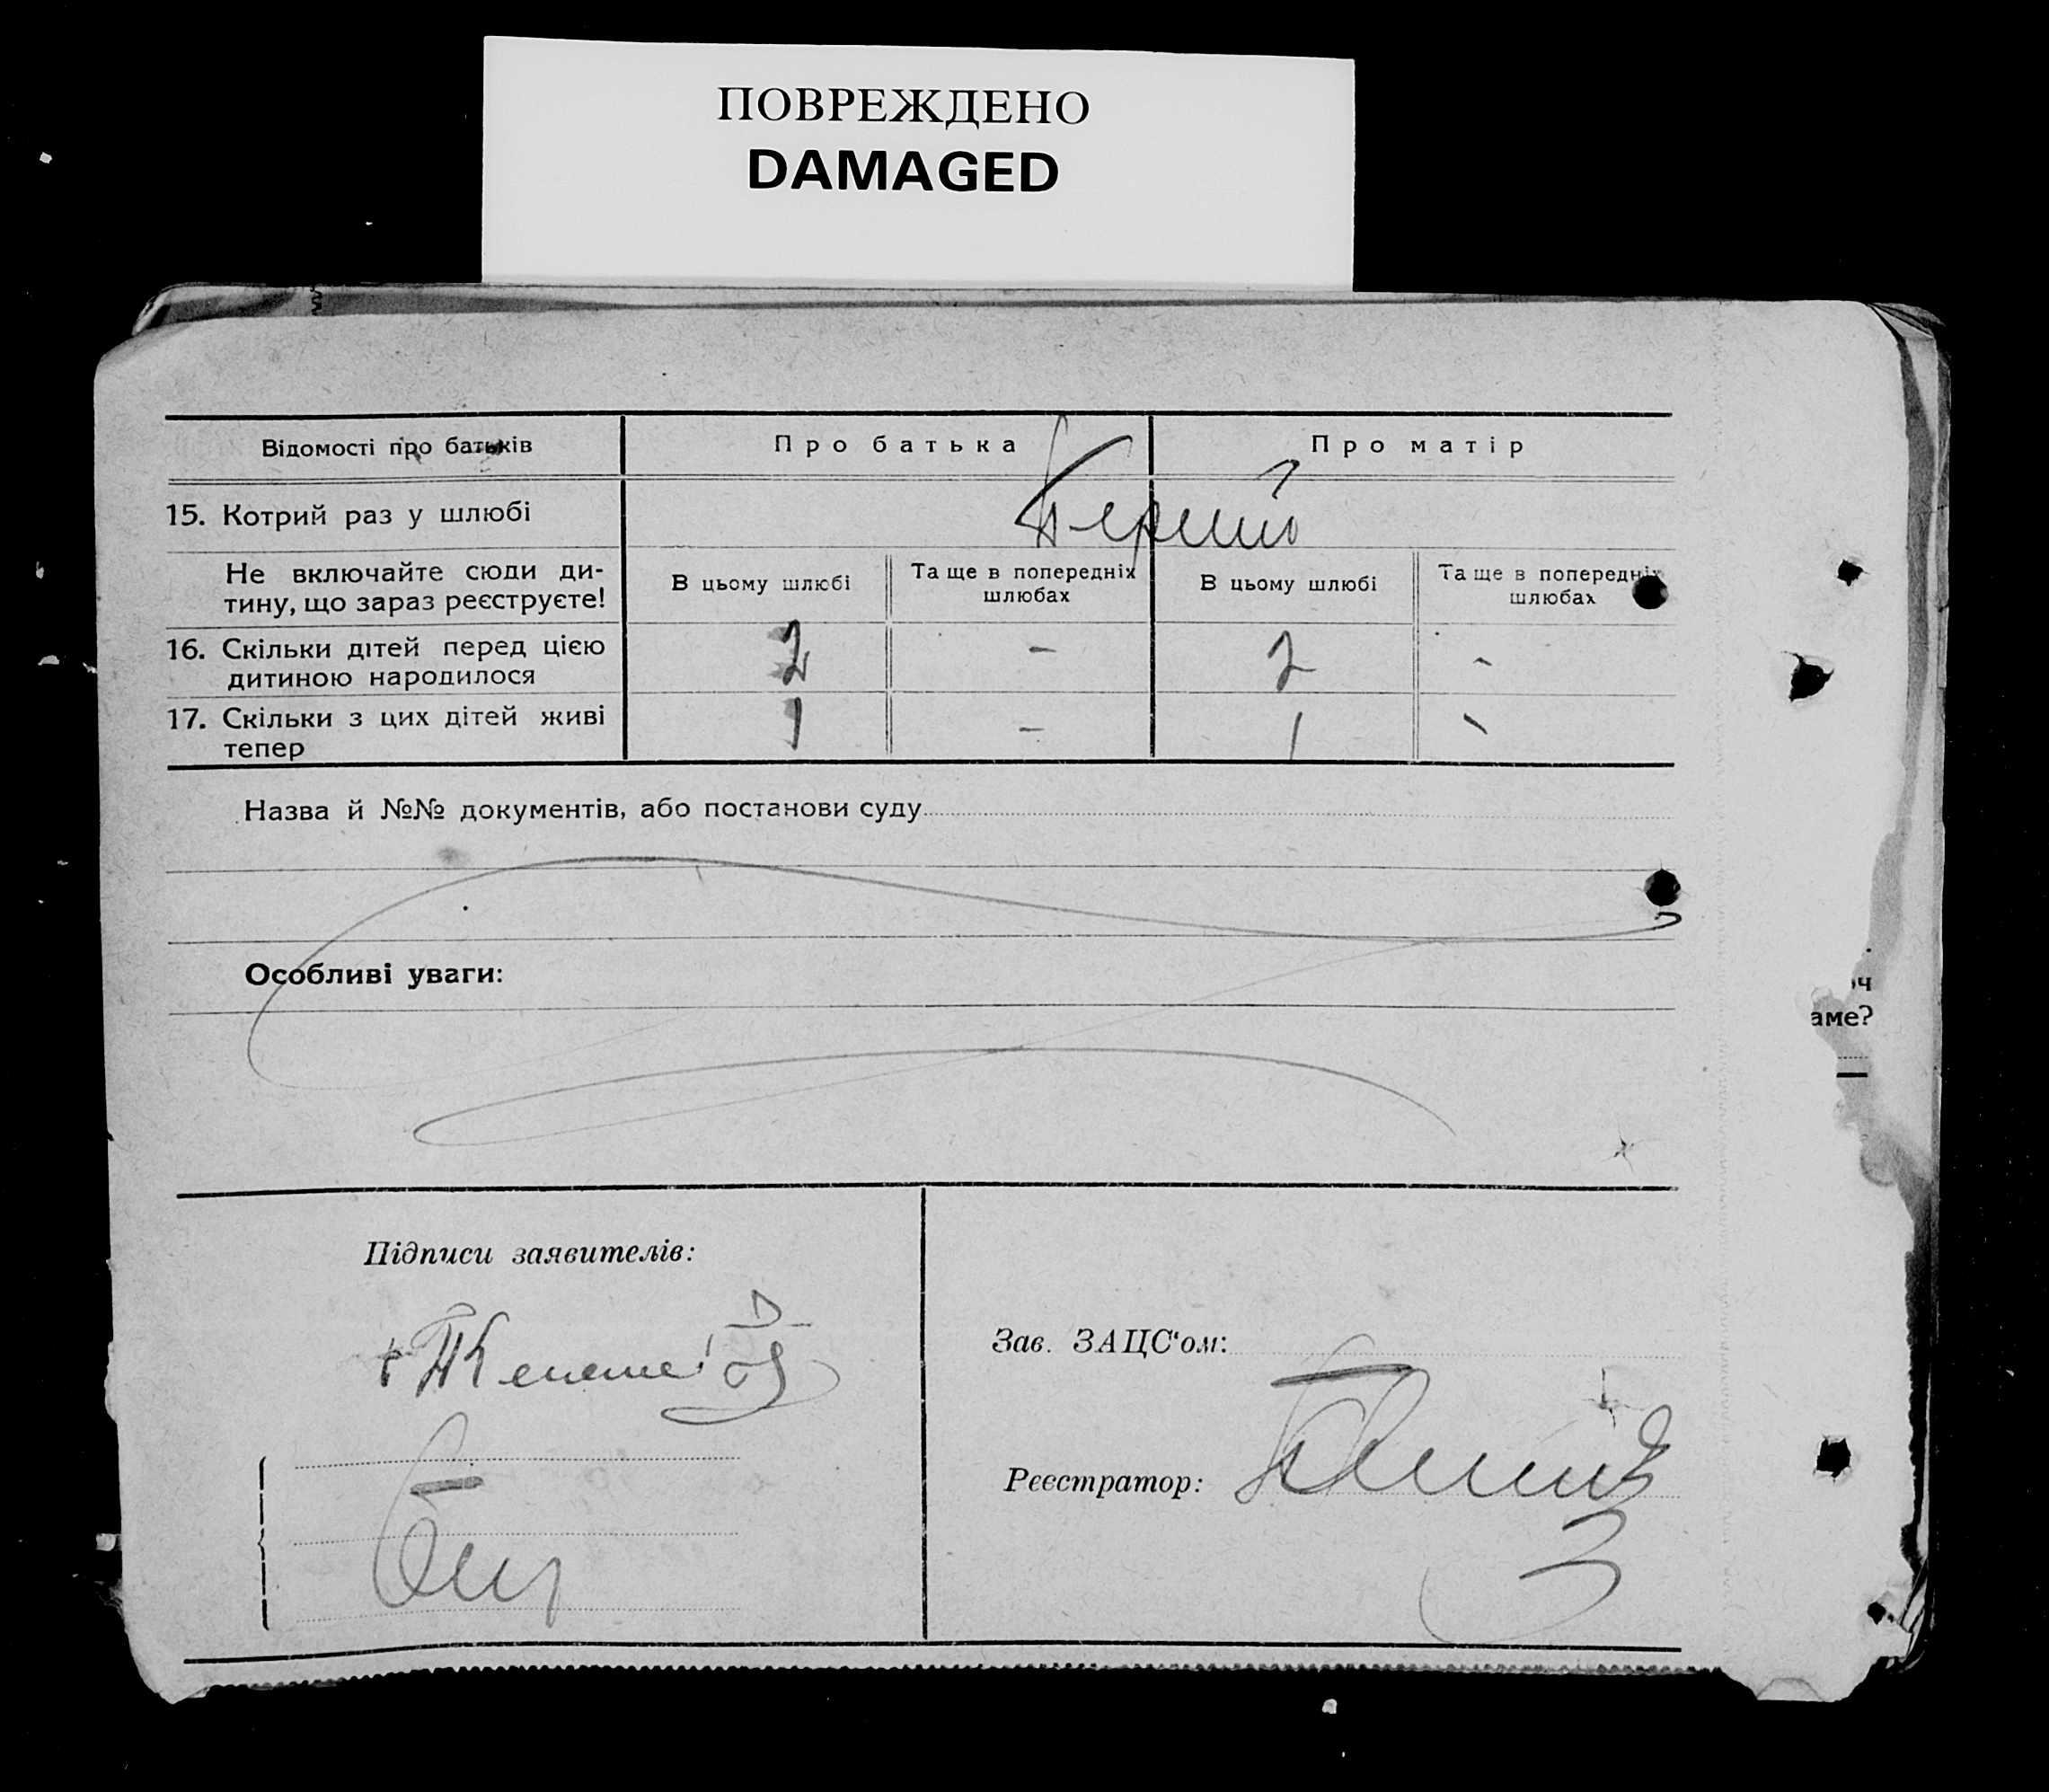 ПОВРЕЖДЕНО
DAMAGED
Відомості про батьків
Про батька
Про матір
15. Котрий раз у шлюбі
Перший
Не включайте сюди ди-
тину, що зараз реєструєте!
В цьому шлюбі
Та ще в попередніх
шлюбах
В цьому шлюбі
Та ще в попередніх
шлюбах
16. Скільки дітей перед цією
дитиною народилося
2 - 2 -
17. Скільки з цих дітей живі
тепер
1 - 1 -
Назва й №№ документів, або постанови суду
Особливі уваги:
аме?
Підписи заявителів:
Зав. ЗАЦС'ом:
Реєстратор: